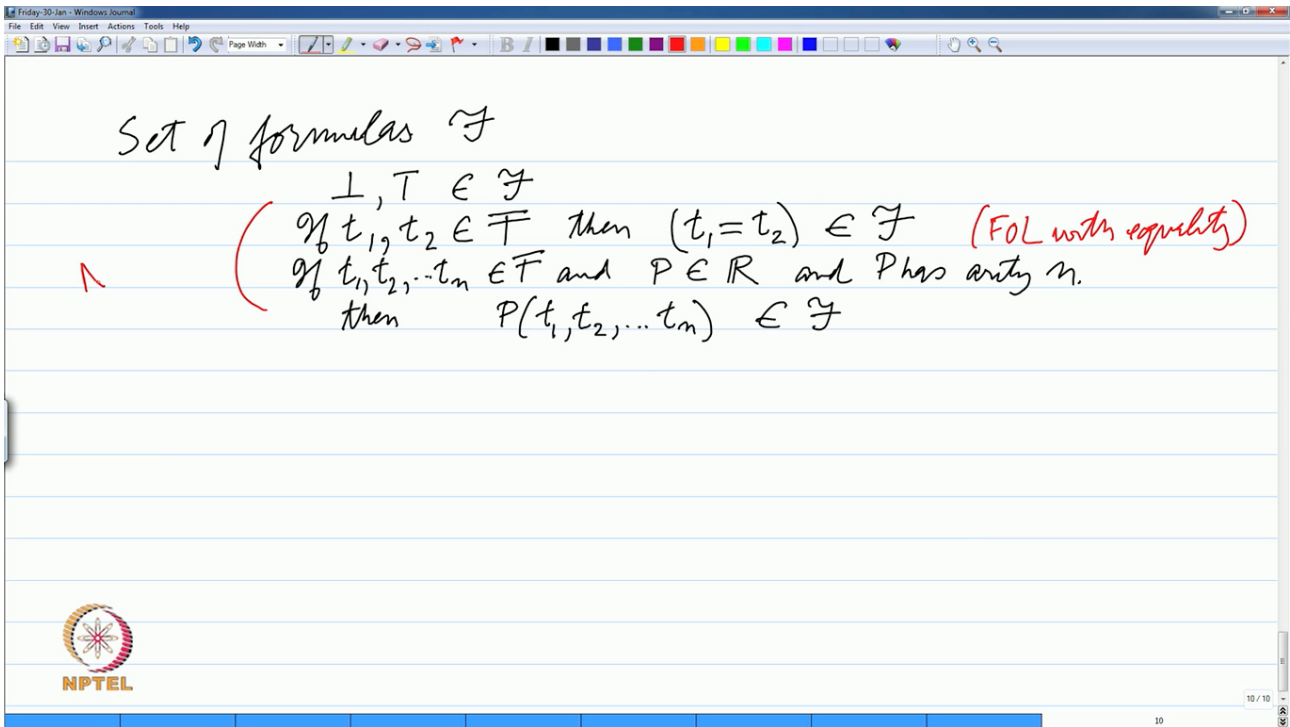 Friday-30-Jan - Windows Journal
File Edit View Insert Actions Tools Help
Page Width B I
Set of formulas ℱ
⊥, ⊤ ∈ ℱ
If t₁, t₂ ∈ 𝕋 then (t₁ = t₂) ∈ ℱ (FOL with equality)
If t₁, t₂, ... tₙ ∈ 𝕋 and P ∈ ℝ and P has arity n.
then P(t₁, t₂, ... tₙ) ∈ ℱ
NPTEL
10 / 10
10